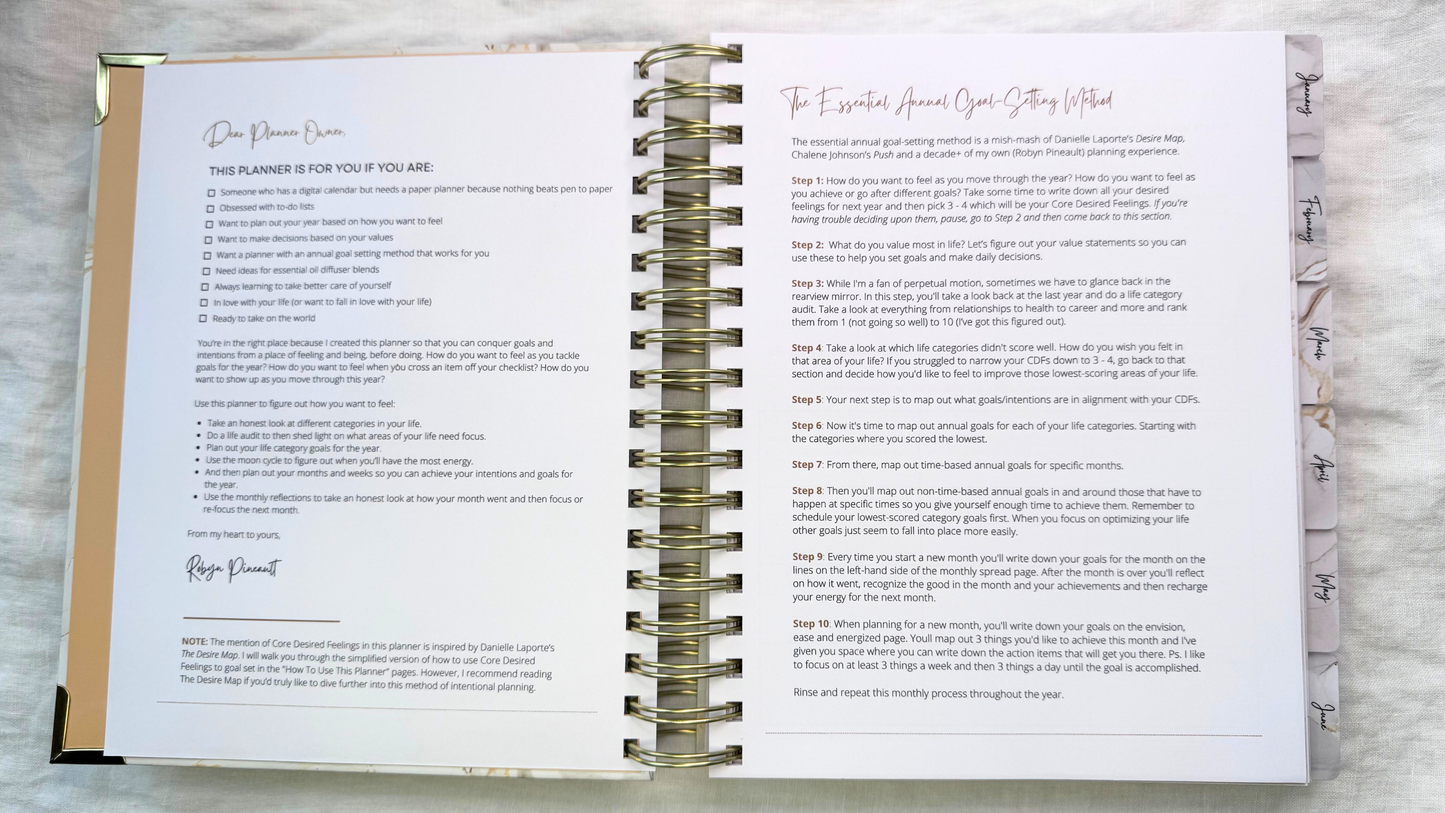 Dear Planner Owner,
THIS PLANNER IS FOR YOU IF YOU ARE:
Someone who has a digital calendar but needs a paper planner because nothing beats pen to paper
Obsessed with to-do lists
Want to plan out your year based on how you want to feel
Want to make decisions based on your values
Want a planner with an annual goal setting method that works for you
Need ideas for essential oil diffuser blends
Always learning to take better care of yourself
In love with your life (or want to fall in love with your life)
Ready to take on the world
You're in the right place because I created this planner so that you can conquer goals and
intentions from a place of feeling and being, before doing. How do you want to feel as you tackle
goals for the year? How do you want to feel when you cross an item off your checklist? How do you
want to show up as you move through this year?
Use this planner to figure out how you want to feel:
• Take an honest look at different categories in your life.
• Do a life audit to then shed light on what areas of your life need focus.
• Plan out your life category goals for the year.
• Use the moon cycle to figure out when you'll have the most energy.
• And then plan out your months and weeks so you can achieve your intentions and goals for
the year.
• Use the monthly reflections to take an honest look at how your month went and then focus or
re-focus the next month.
From my heart to yours,
Robyn Pineault
NOTE: The mention of Core Desired Feelings in this planner is inspired by Danielle Laporte's
The Desire Map. I will walk you through the simplified version of how to use Core Desired
Feelings to goal set in the "How To Use This Planner" pages. However, I recommend reading
The Desire Map if you'd truly like to dive further into this method of intentional planning.
The Essential Annual Goal-Setting Method
The essential annual goal-setting method is a mish-mash of Danielle Laporte's Desire Map,
Chalene Johnson's Push and a decade+ of my own (Robyn Pineault) planning experience.
Step 1: How do you want to feel as you move through the year? How do you want to feel as
you achieve or go after different goals? Take some time to write down all your desired
feelings for next year and then pick 3 - 4 which will be your Core Desired Feelings. If you're
having trouble deciding upon them, pause, go to Step 2 and then come back to this section.
Step 2: What do you value most in life? Let's figure out your value statements so you can
use these to help you set goals and make daily decisions.
Step 3: While I'm a fan of perpetual motion, sometimes we have to glance back in the
rearview mirror. In this step, you'll take a look back at the last year and do a life category
audit. Take a look at everything from relationships to health to career and more and rank
them from 1 (not going so well) to 10 (I've got this figured out).
Step 4: Take a look at which life categories didn't score well. How do you wish you felt in
that area of your life? If you struggled to narrow your CDFs down to 3 - 4, go back to that
section and decide how you'd like to feel to improve those lowest-scoring areas of your life.
Step 5: Your next step is to map out what goals/intentions are in alignment with your CDFs.
Step 6: Now it's time to map out annual goals for each of your life categories. Starting with
the categories where you scored the lowest.
Step 7: From there, map out time-based annual goals for specific months.
Step 8: Then you'll map out non-time-based annual goals in and around those that have to
happen at specific times so you give yourself enough time to achieve them. Remember to
schedule your lowest-scored category goals first. When you focus on optimizing your life
other goals just seem to fall into place more easily.
Step 9: Every time you start a new month you'll write down your goals for the month on the
lines on the left-hand side of the monthly spread page. After the month is over you'll reflect
on how it went, recognize the good in the month and your achievements and then recharge
your energy for the next month.
Step 10: When planning for a new month, you'll write down your goals on the envision,
ease and energized page. Youll map out 3 things you'd like to achieve this month and I've
given you space where you can write down the action items that will get you there. Ps. I like
to focus on at least 3 things a week and then 3 things a day until the goal is accomplished.
Rinse and repeat this monthly process throughout the year.
January
February
March
April
May
June